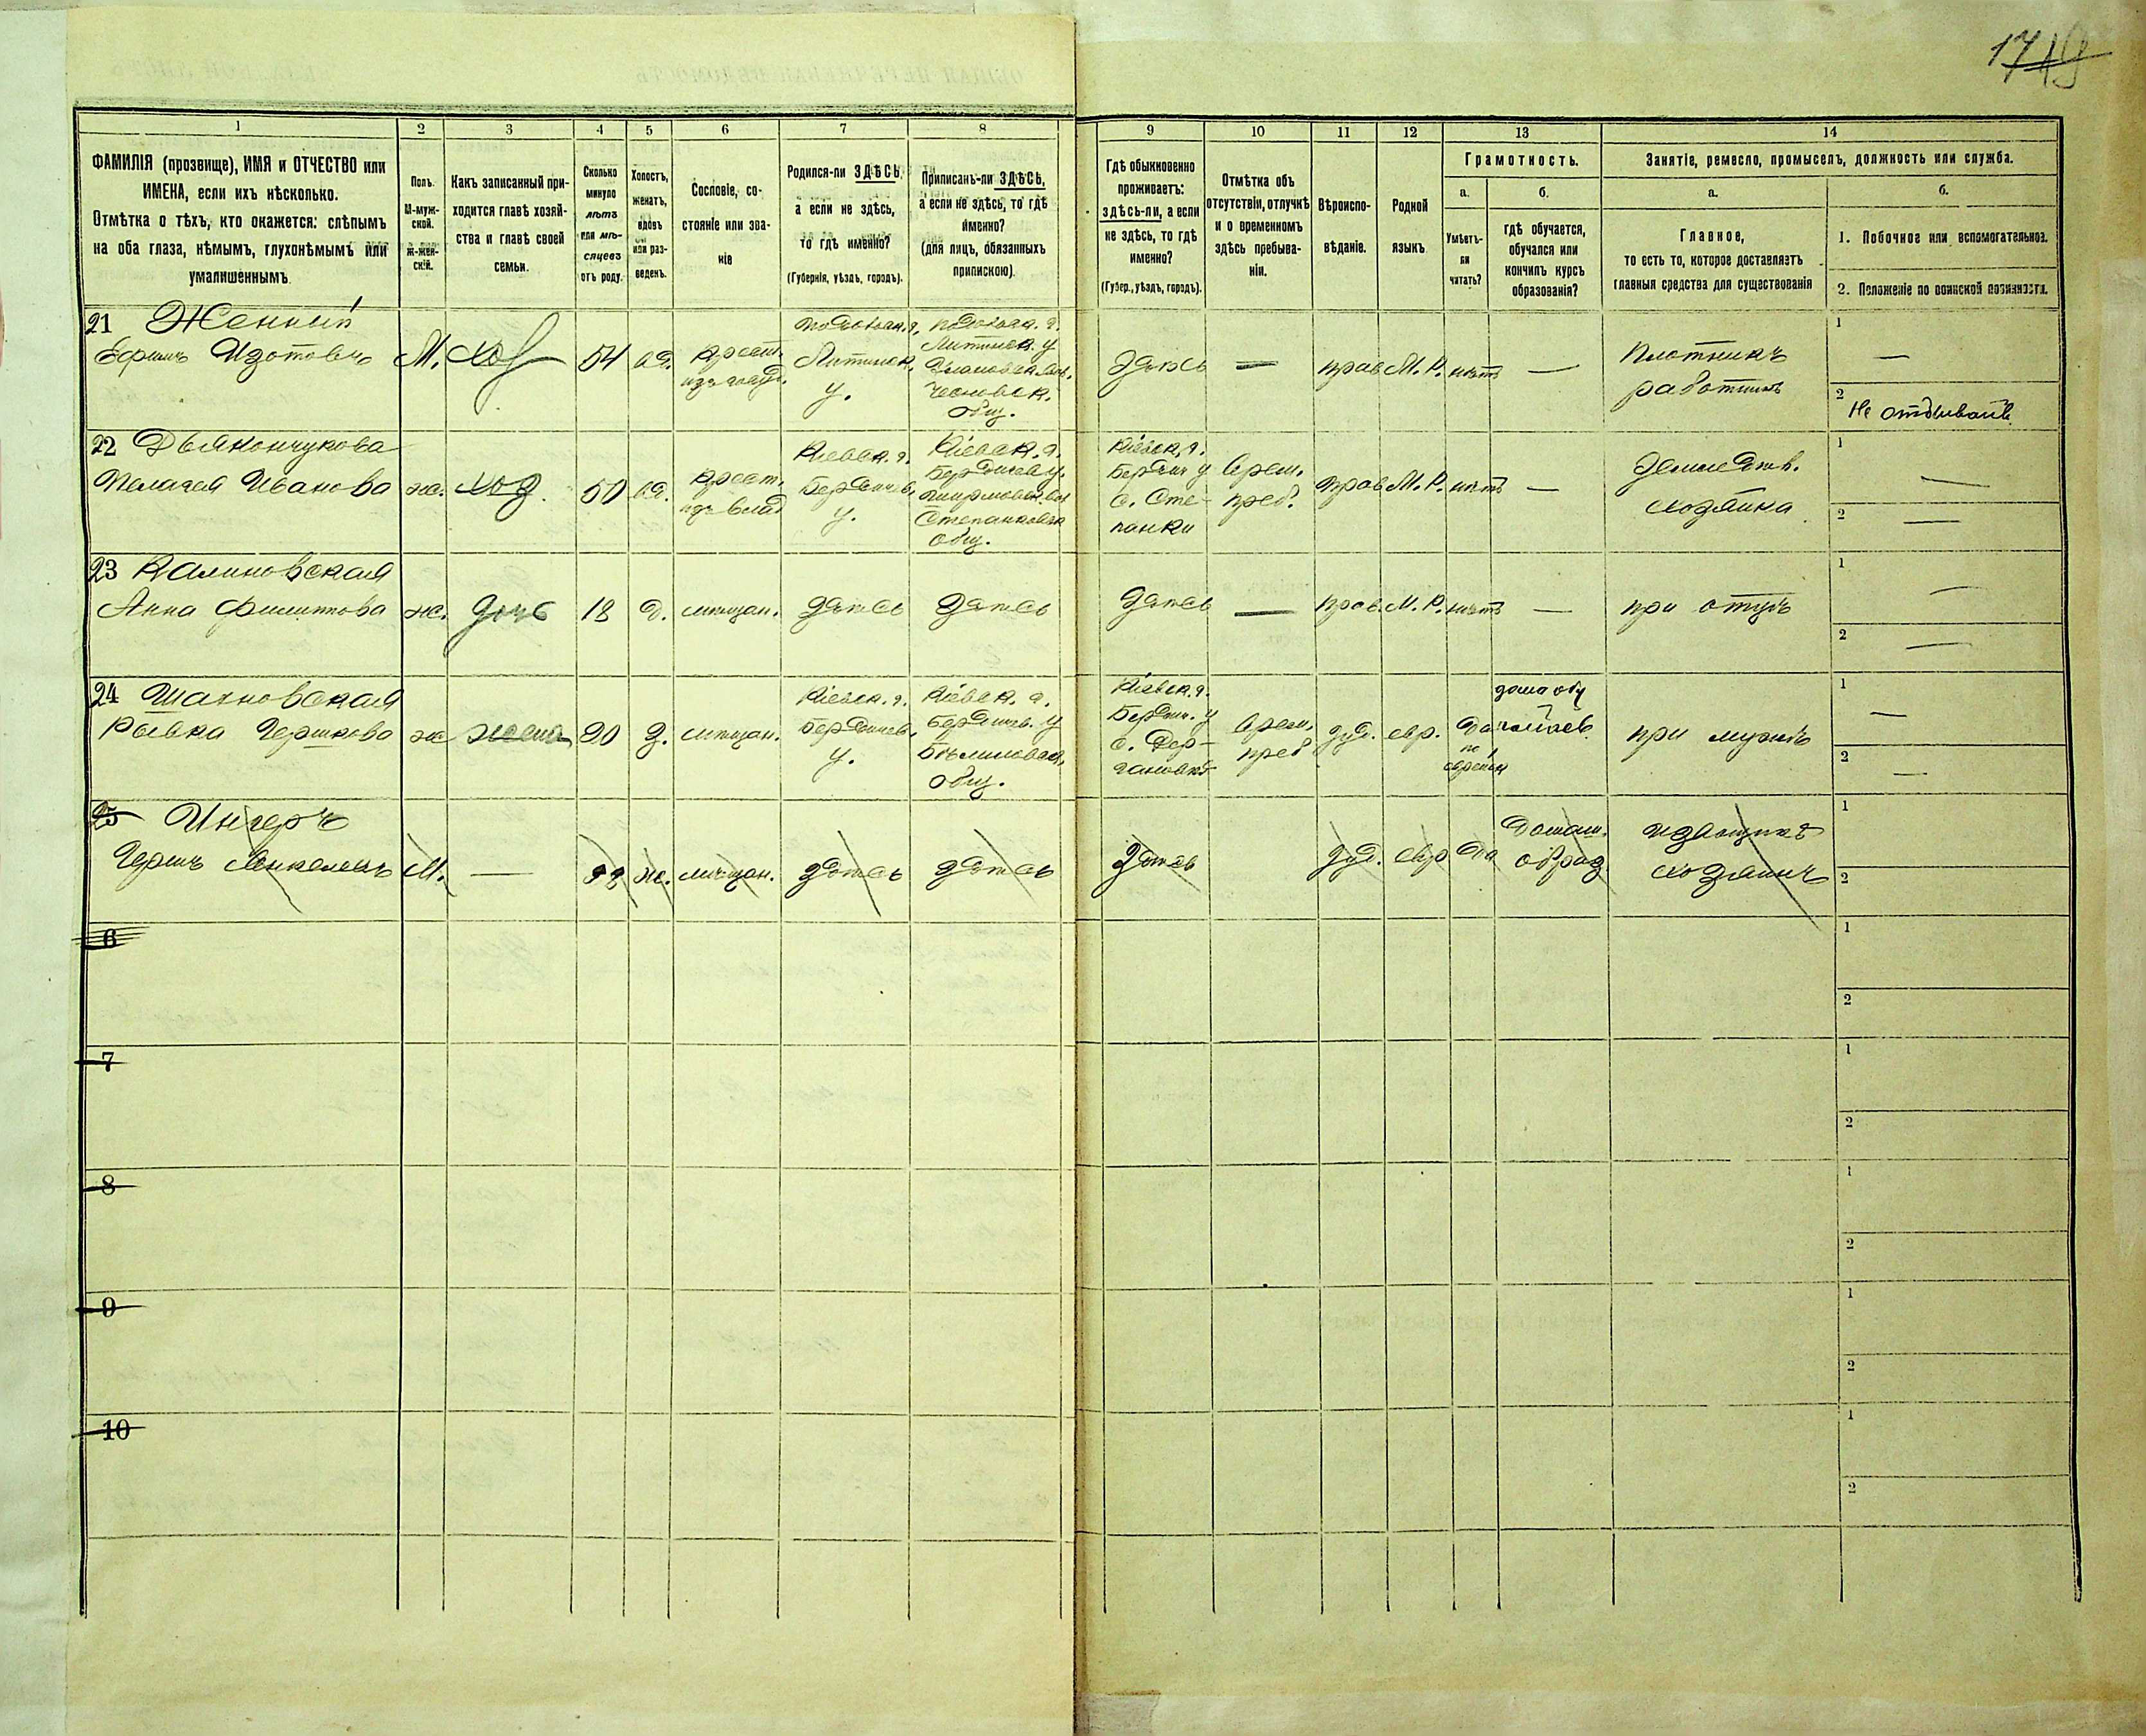 1719
1 2 3 4 5 6 7 8 9 10 11 12 13 14
ФАМИЛІЯ (прозвище), ИМЯ и ОТЧЕСТВО или
ИМЕНА, если ихъ нѣсколько.
Отмѣтка о тѣхъ, кто окажется: слѣпымъ
на оба глаза, нѣмымъ, глухонѣмымъ или
умалишеннымъ.
Полъ.
М-муж-
ской.
ж-жен-
скій.
Какъ записанный при-
ходится главѣ хозяй-
ства и главѣ своей
семьи.
Сколько
минуло
лѣтъ
или мѣ-
сяцевъ
отъ роду.
Холостъ,
женатъ,
вдовъ
или раз-
веденъ.
Сословіе, со-
стояніе или зва-
ніе
Родился-ли ЗДѢСЬ,
а если не здѣсь,
то гдѣ именно?
(Губернія, уѣздъ, городъ).
Приписанъ-ли ЗДѢСЬ,
а если не здѣсь, то гдѣ
именно?
(для лицъ, обязанныхъ
припискою).
Гдѣ обыкновенно
проживаетъ:
здѣсь-ли, а если
не здѣсь, то гдѣ
именно?
(Губер., уѣздъ, городъ).
Отмѣтка объ
отсутствіи, отлучкѣ
и о временномъ
здѣсь пребыва-
ніи.
Вѣроиспо-
вѣданіе.
Родной
языкъ.
Грамотность.
а.
Умѣетъ-
ли
читать?
б.
гдѣ обучается,
обучался или
кончилъ курсъ
образованія?
Занятіе, ремесло, промыселъ, должность или служба.
а.
Главное,
то есть то, которое доставляетъ
главныя средства для существованія
б.
1. Побочное или вспомогательное.
2. Положеніе по воинской повинности.
21 Женный
Ефимъ Изотовъ
М.
54
вд.
крест.
Подольск. г.
Литинск.
у.
Подольск. г.
Литинск. у
общ.
Здѣсь
—
прав.
М. Р.
нѣтъ
—
Плотникъ
работникъ
1
—
2
Не отбывалъ
22 Дьякончукова
Пелагея Иванова
ж.
50
вд.
крест.
изъ влад
Кіевск. г.
Бердичев.
у.
Кіевск. г.
Бердичев у.
Степанковск
общ.
Кіевск. г.
Бердич у
с. Сте-
панки
врем.
преб.
прав.
М. Р.
нѣтъ
—
хозяйка
1
—
2
—
23 Калиновская
Анна Филиппова
ж.
дочь
18
д.
мѣщан.
здѣсь
здѣсь
здѣсь
—
прав.
М. Р.
нѣтъ
—
при отцѣ
1
—
2
—
24 Шахновская
Ривка Гершкова
ж
жена
20
з.
мѣщан.
Кіевск. г.
Бердичев.
у.
Кіевск. г.
Бердичв. у
общ.
Кіевск. г.
Бердич. у
врем.
преб
іуд.
евр.
да
по
еврейск
при мужѣ
1
—
2
—
25 Ингеръ
М.
—
ж.
мѣщан.
здѣсь
здѣсь
здѣсь
іуд.
евр
да
домаш.
образ
извощикъ
хозяинъ
1
2
6
1
2
7
1
2
8
1
2
9
1
2
10
1
2